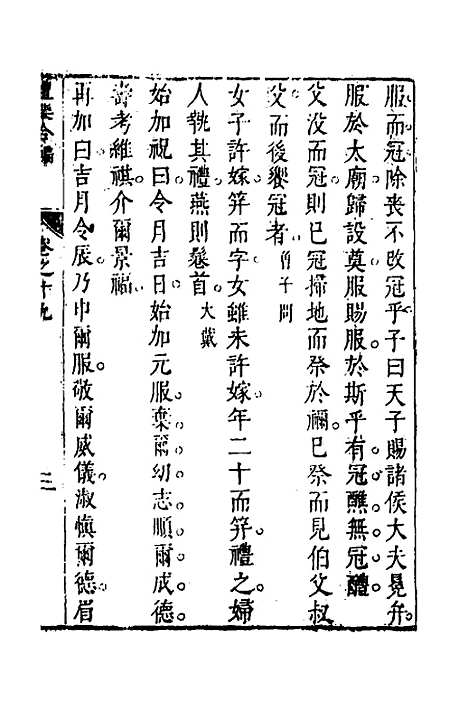 服而冠除喪不改冠乎子曰天子賜諸侯大夫冕弁。
服於太廟歸設奠服賜服。於斯乎有冠醮無冠醴。
父没而冠則已冠掃地而祭於禰。已祭而見伯父叔
父而後饗冠者。曾子問
女子許嫁笄而字女雖未許嫁。年二十而笄。禮之婦
人執其禮。燕則鬈首。大戴
始加祝曰令月吉日。始加元服。棄爾幼志。順爾成德。
壽考維祺。介爾景福。
再加曰吉月令辰。乃申爾服。敬爾威儀。淑慎爾德。眉
禮樂合編
卷之十九
三